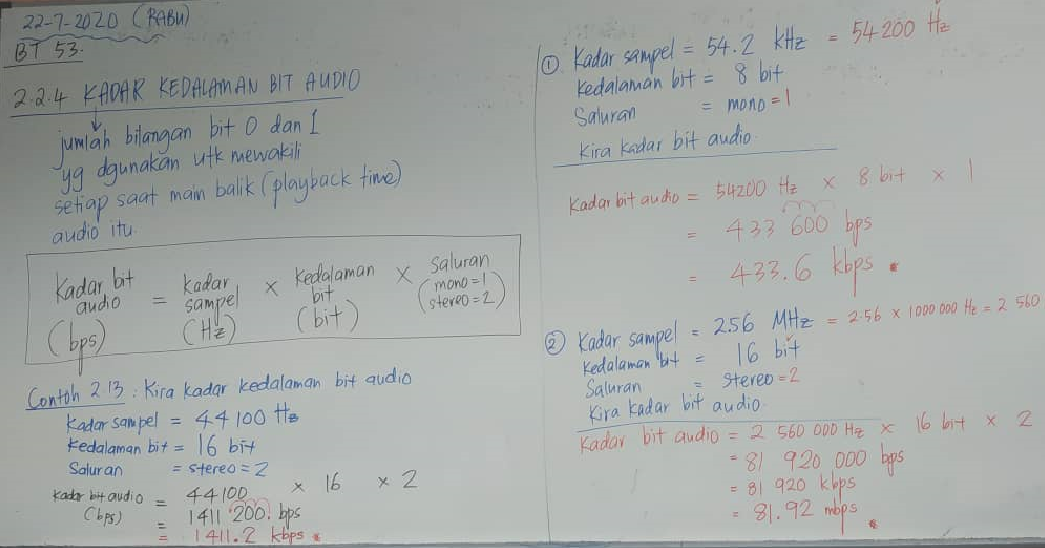 22-7-2020 (RABU)
BT 53.
2.2.4 KADAR KEDALAMAN BIT AUDIO
jumlah bilangan bit 0 dan 1
yg dgunakan utk mewakili
setiap saat main balik (playback time)
audio itu.
Kadar bit audio (bps) = kadar sampel (Hz) × Kedalaman bit (bit) × Saluran (mono = 1 stereo = 2)
Contoh 2.13 : Kira kadar kedalaman bit audio
Kadar sampel = 44100 Hz
Kedalaman bit = 16 bit
Saluran = stereo = 2
Kadar bit audio (bps) = 44100 × 16 × 2
= 1411 200. bps
= 1411.2 kbps
① Kadar sampel = 54.2 kHz = 54200 Hz
Kedalaman bit = 8 bit
Saluran = mono = 1
Kira kadar bit audio.
Kadar bit audio = 54200 Hz × 8 bit × 1
= 433 600 bps
= 433.6 kbps
② Kadar sampel = 2.56 MHz = 2.56 × 1000 000 Hz = 2 560
Kedalaman bit = 16 bit
Saluran = stereo = 2
Kira kadar bit audio.
Kadar bit audio = 2 560 000 Hz × 16 bit × 2
= 81 920 000 bps
= 81 920 kbps
= 81.92 mbps